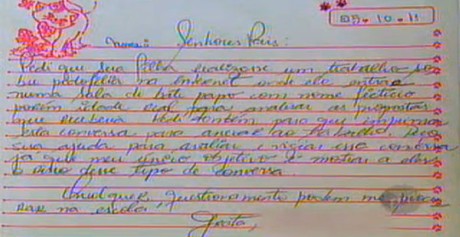 03.10.11
Senhores Pais:
Pedi que seu filho realizasse um trabalho so
bre pedofilia na internet onde ele entrou
numa sala de bate papo com nome fictício
porém idade real para analisar as propostas
que receberia. Pedi também para que imprima
esta conversa para anexar ao trabalho. Peço
sua ajuda para avaliar e vigiar essa conversa
já que meu único objetivo é mostrar a eles
o risco desse tipo de conversa.
Qualquer questionamento podem me procu
rar na escola.
Grata,